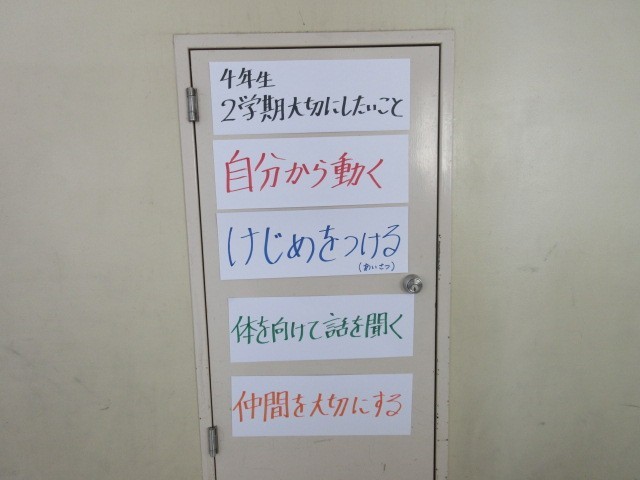 4年生
2学期大切にしたいこと
自分から動く
けじめをつける
(あいさつ)
体を向けて話を聞く
仲間を大切にする